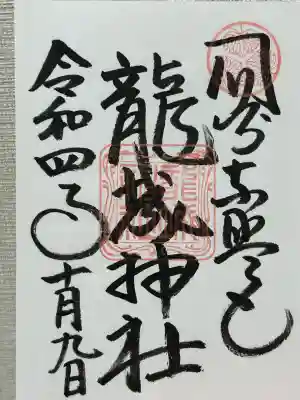 岡崎東照宮
龍城神社
令和四年十月九日